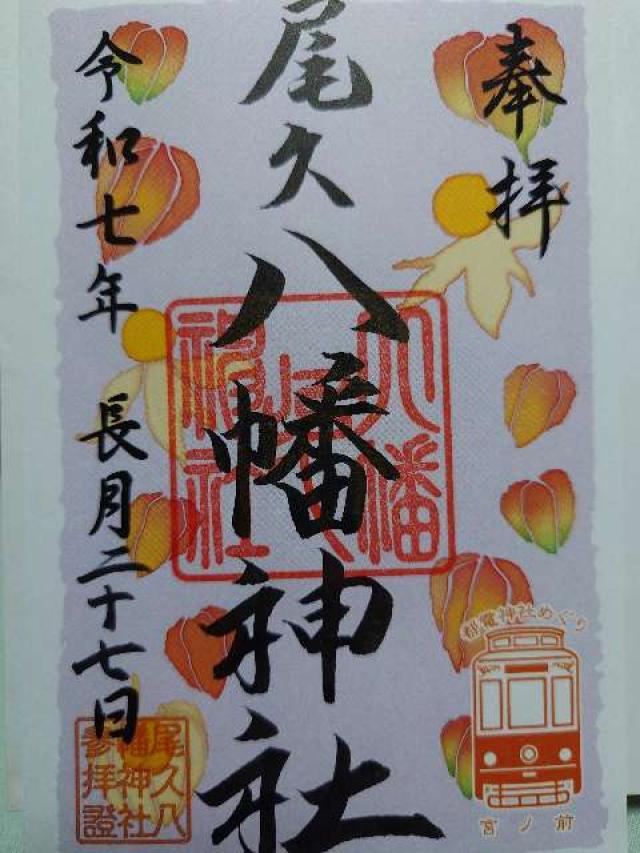 奉拝
尾久八幡神社
令和七年 長月二十七日
都電神社めぐり
宮ノ前
尾久八
幡神社
参拝證